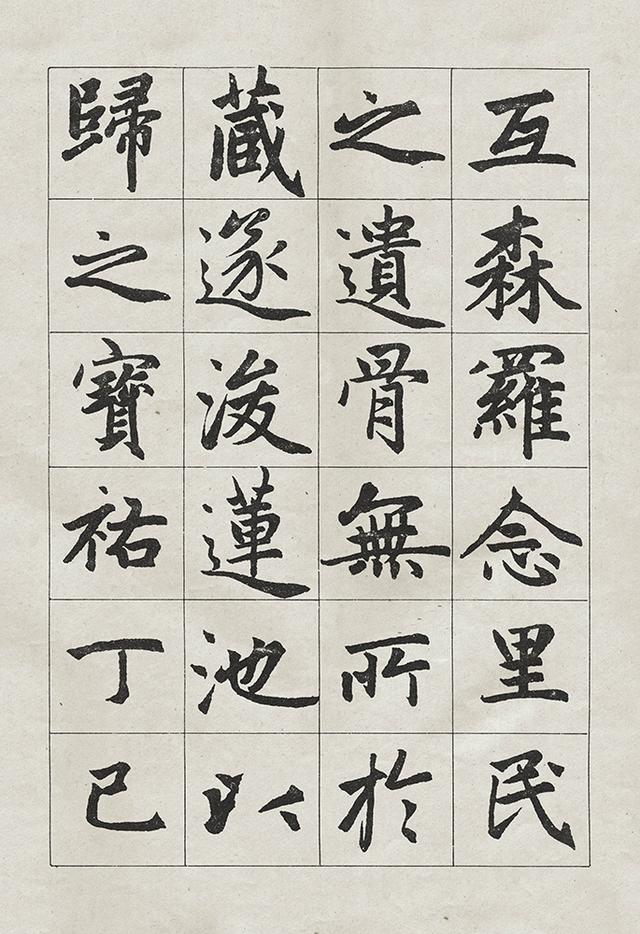 互森羅念里民
之遺骨無所於
藏遂浚蓮池以
歸之寶祐丁巳